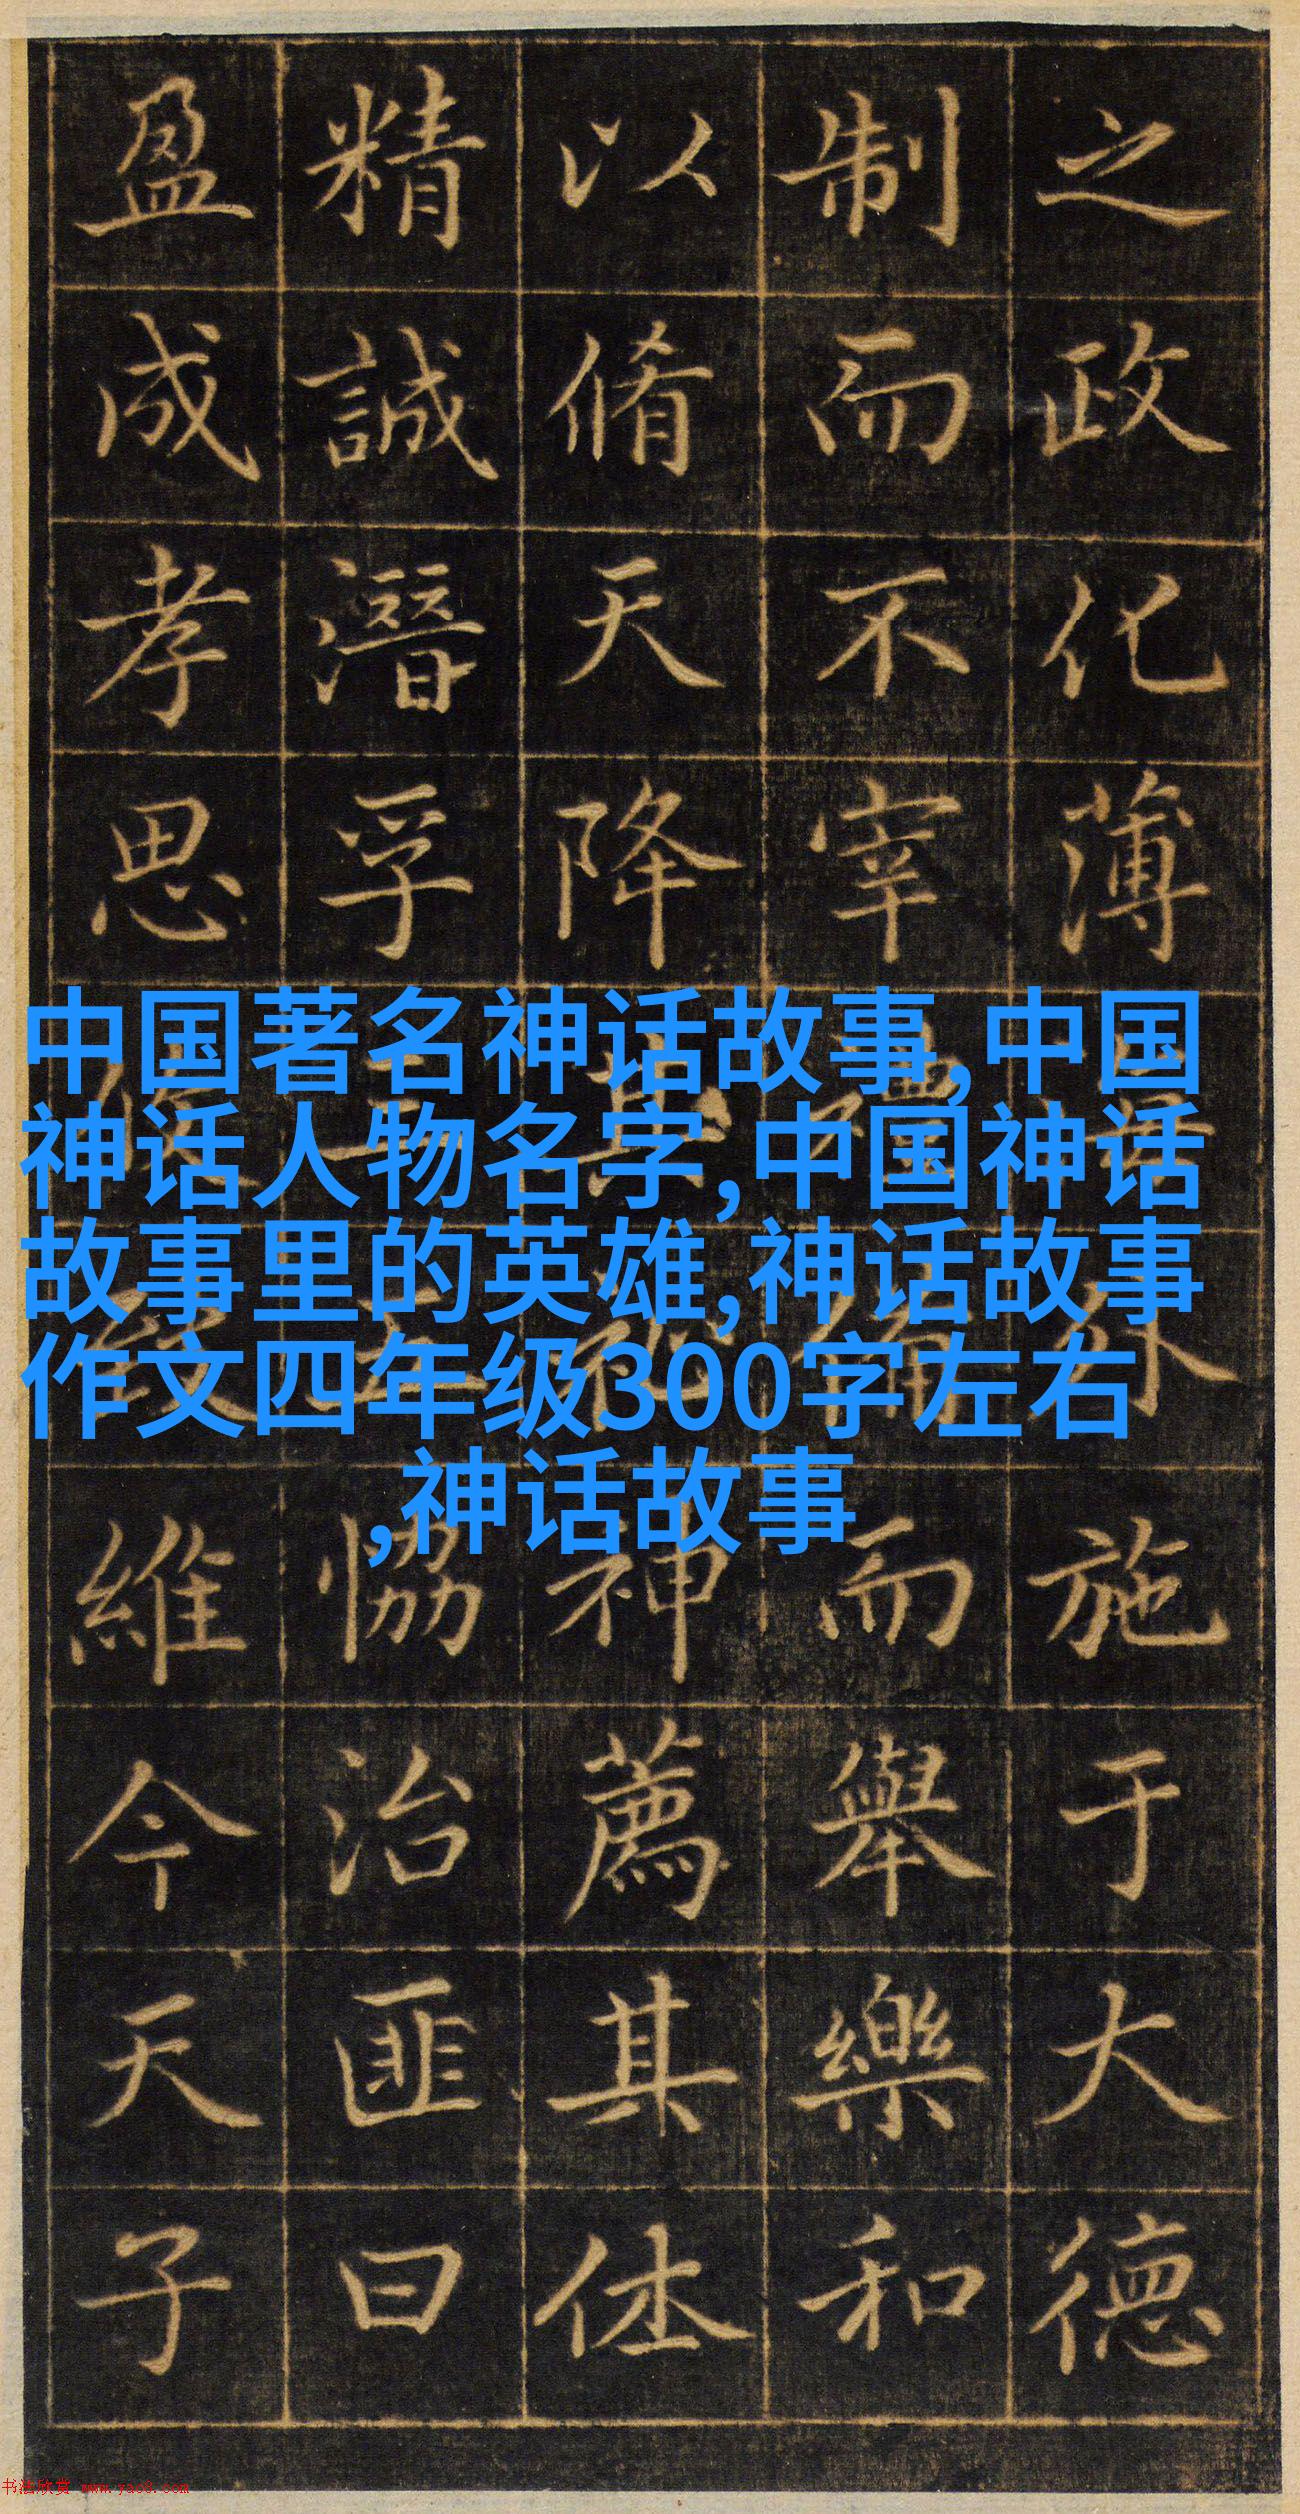 之政化薄施于大德
制而不宰而舉樂和
以脩天降其神薦其休
精誠潛孚恊治匪曰
盈成孝思維今天子
中国著名神话故事,中国
神话人物名字,中国神话
故事里的英雄,神话故事
作文四年级300字左右
,神话故事
书法欣赏 www.yac8.com